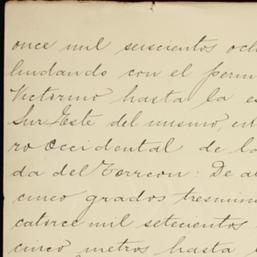 once mil seiscientos och
lindando con el perm
Victorino hasta la es
Sur Este del mismo, en
ro occidental de la
da del Torreon: De a
cinco grados tres minu
catorce mil setecientos
cinco metros hasta